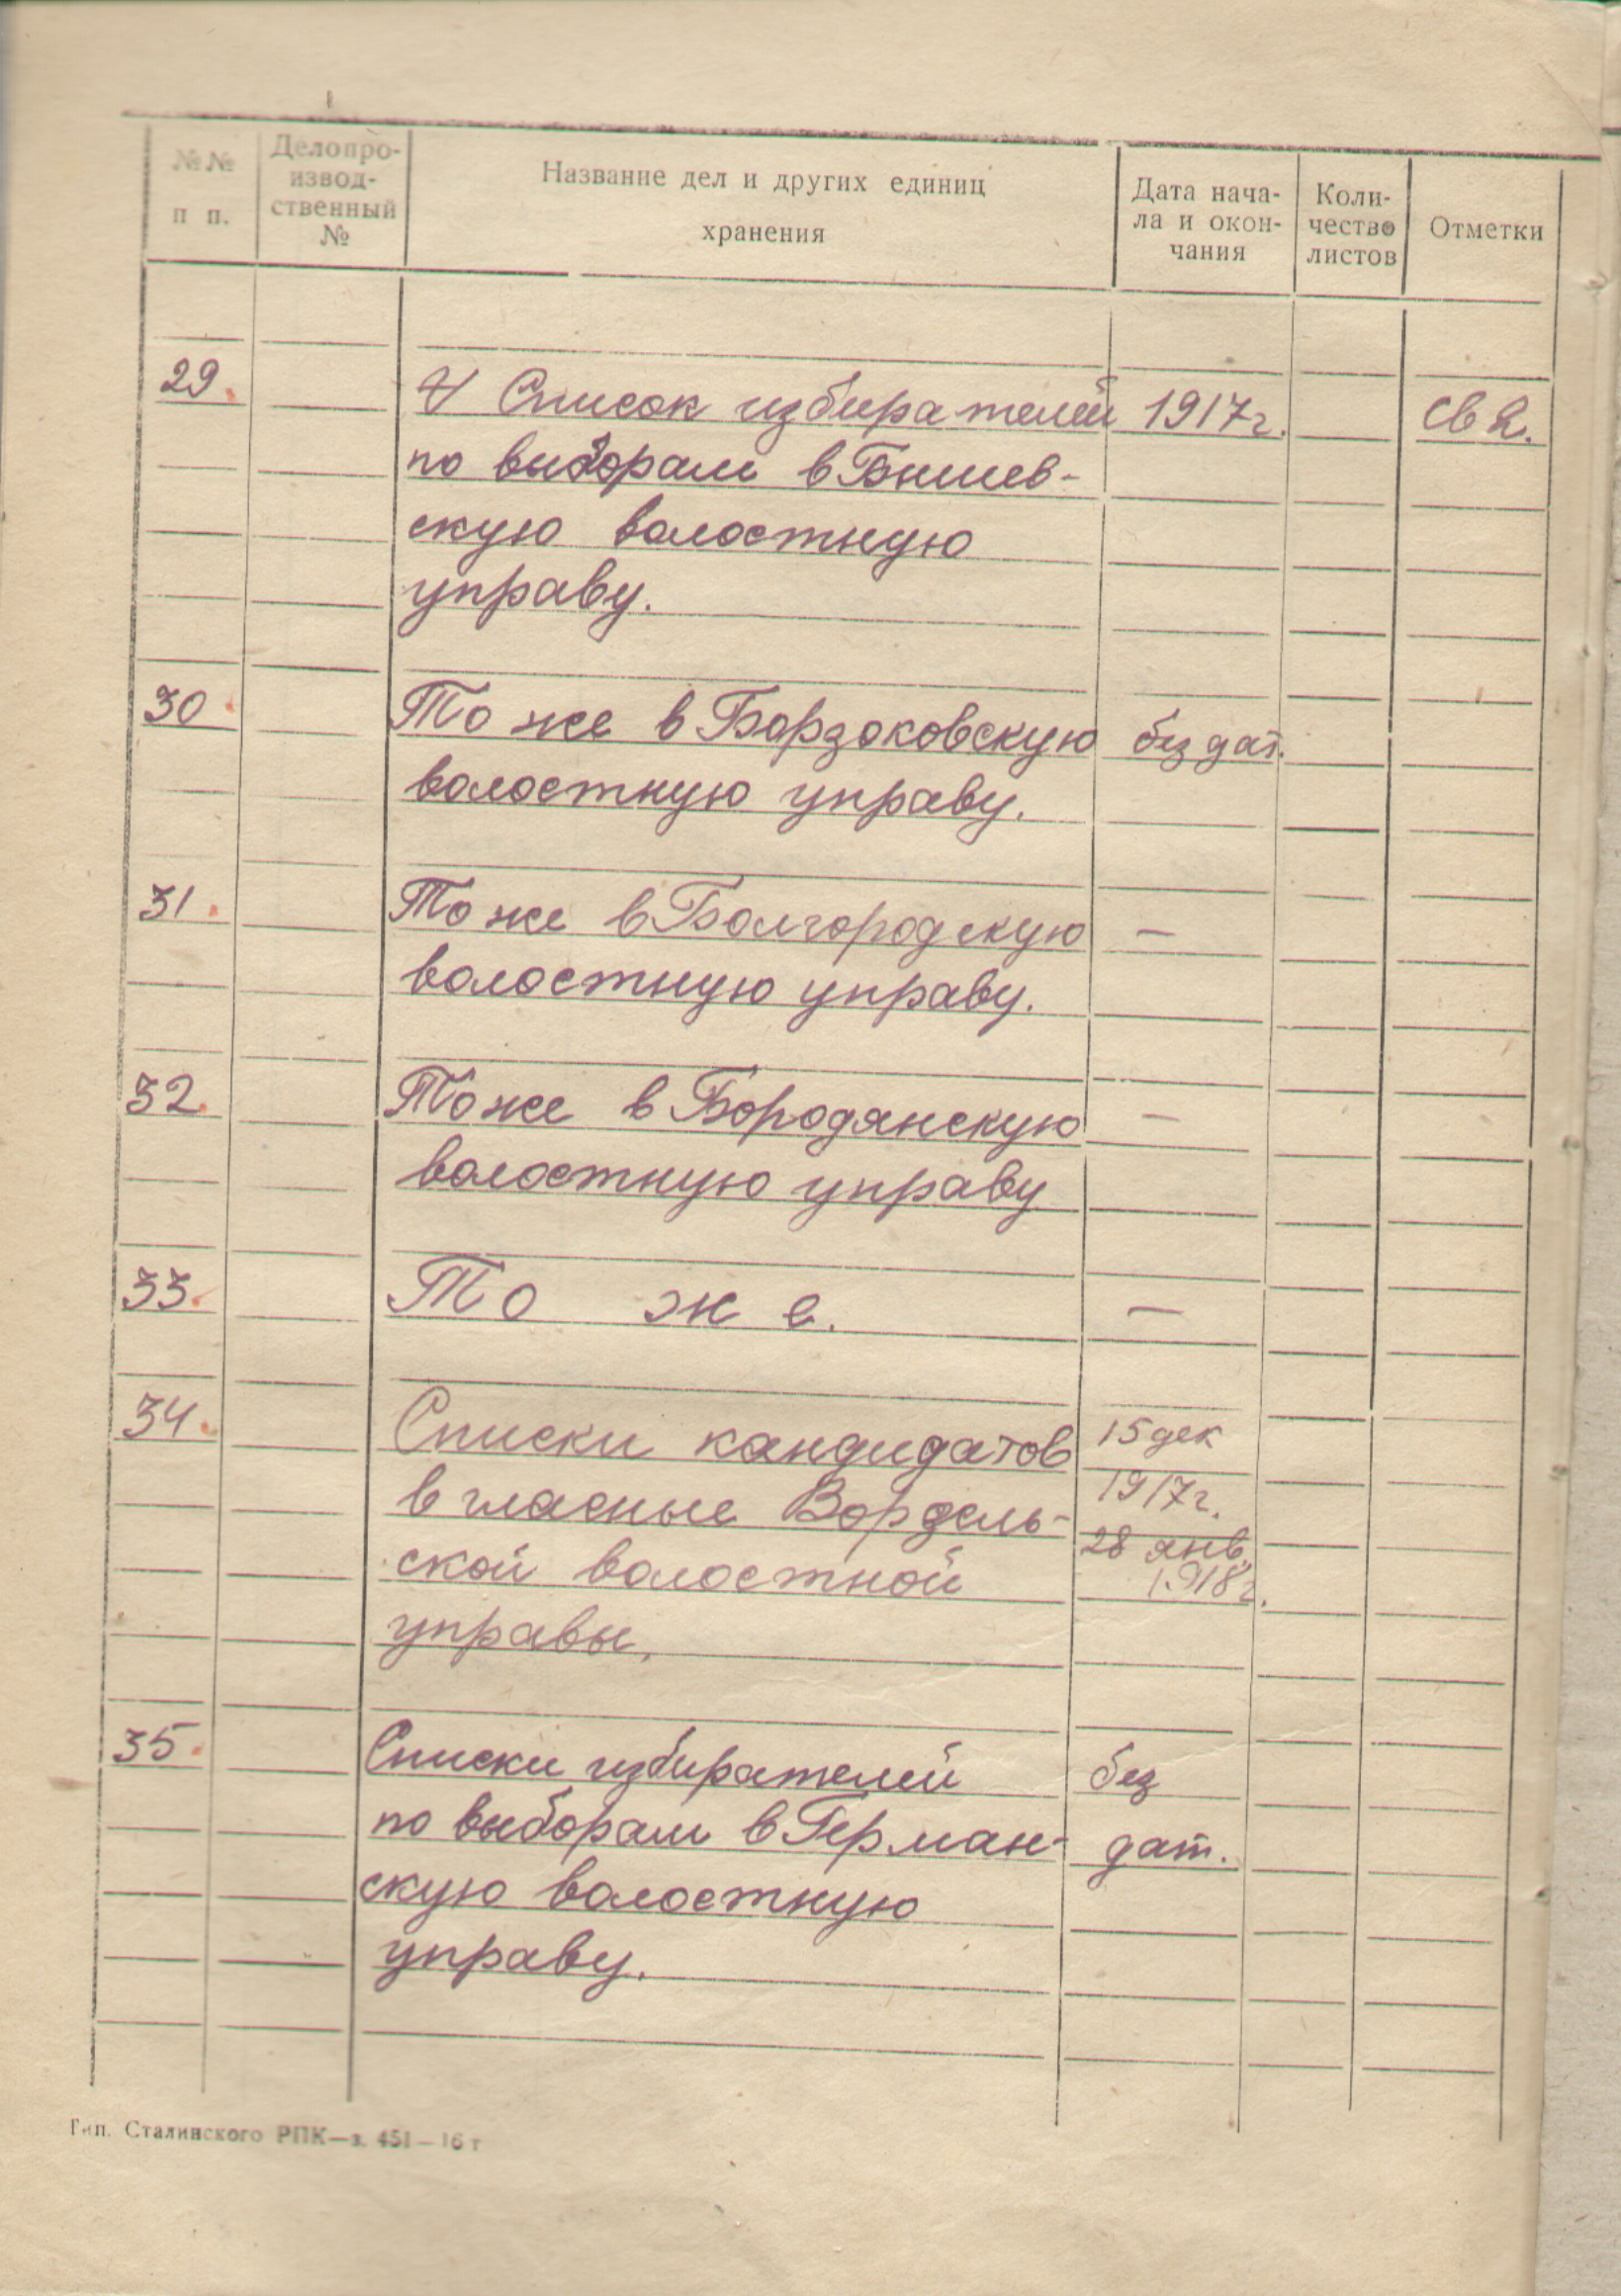 №№ п п.
Делопро-
извод-
ственный
№
Название дел и других единиц
хранения
Дата нача-
ла и окон-
чания
Коли-
чество
листов
Отметки
29. V Список избирателей 1917г.
по выборам в Бишев-
скую волостную
управу.
30 То же в Борзаковскую без дат.
волостную управу.
31. То же в Болгородскую —
волостную управу.
32. То же в Бородянскую —
волостную управу
33. То же. —
34. Списки кандидатов 15 дек
в гласные Вордель- 1917г.
ской волостной 28 янв.
1918г.
управы.
35. Списки избирателей без
по выборам в Герман- дат.
скую волостную
управу.
Тип. Сталинского РПК—з. 451—16 т